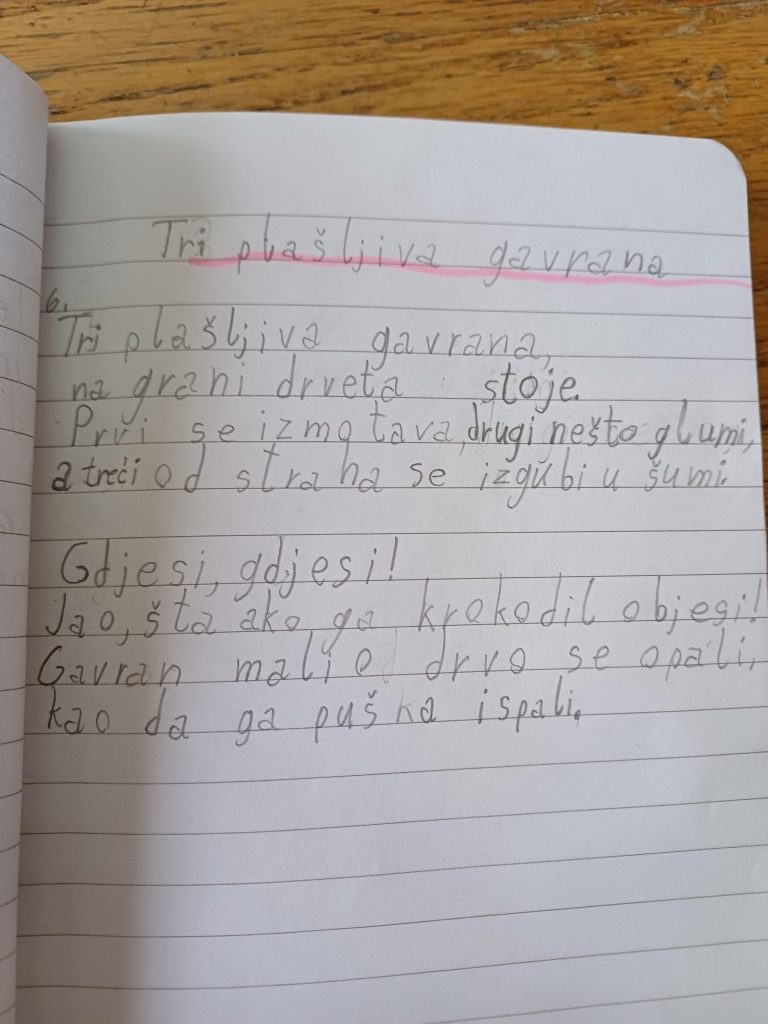 Tri plašljiva gavrana
6.
Tri plašljiva gavrana,
na grani drveta stoje.
Prvi se izmotava, drugi nešto glumi,
a treći od straha se izgubi u šumi.
Gdjesi, gdjesi!
Jao, šta ako ga krokodil objesi!
Gavran mali o drvo se opali,
kao da ga puška ispali.